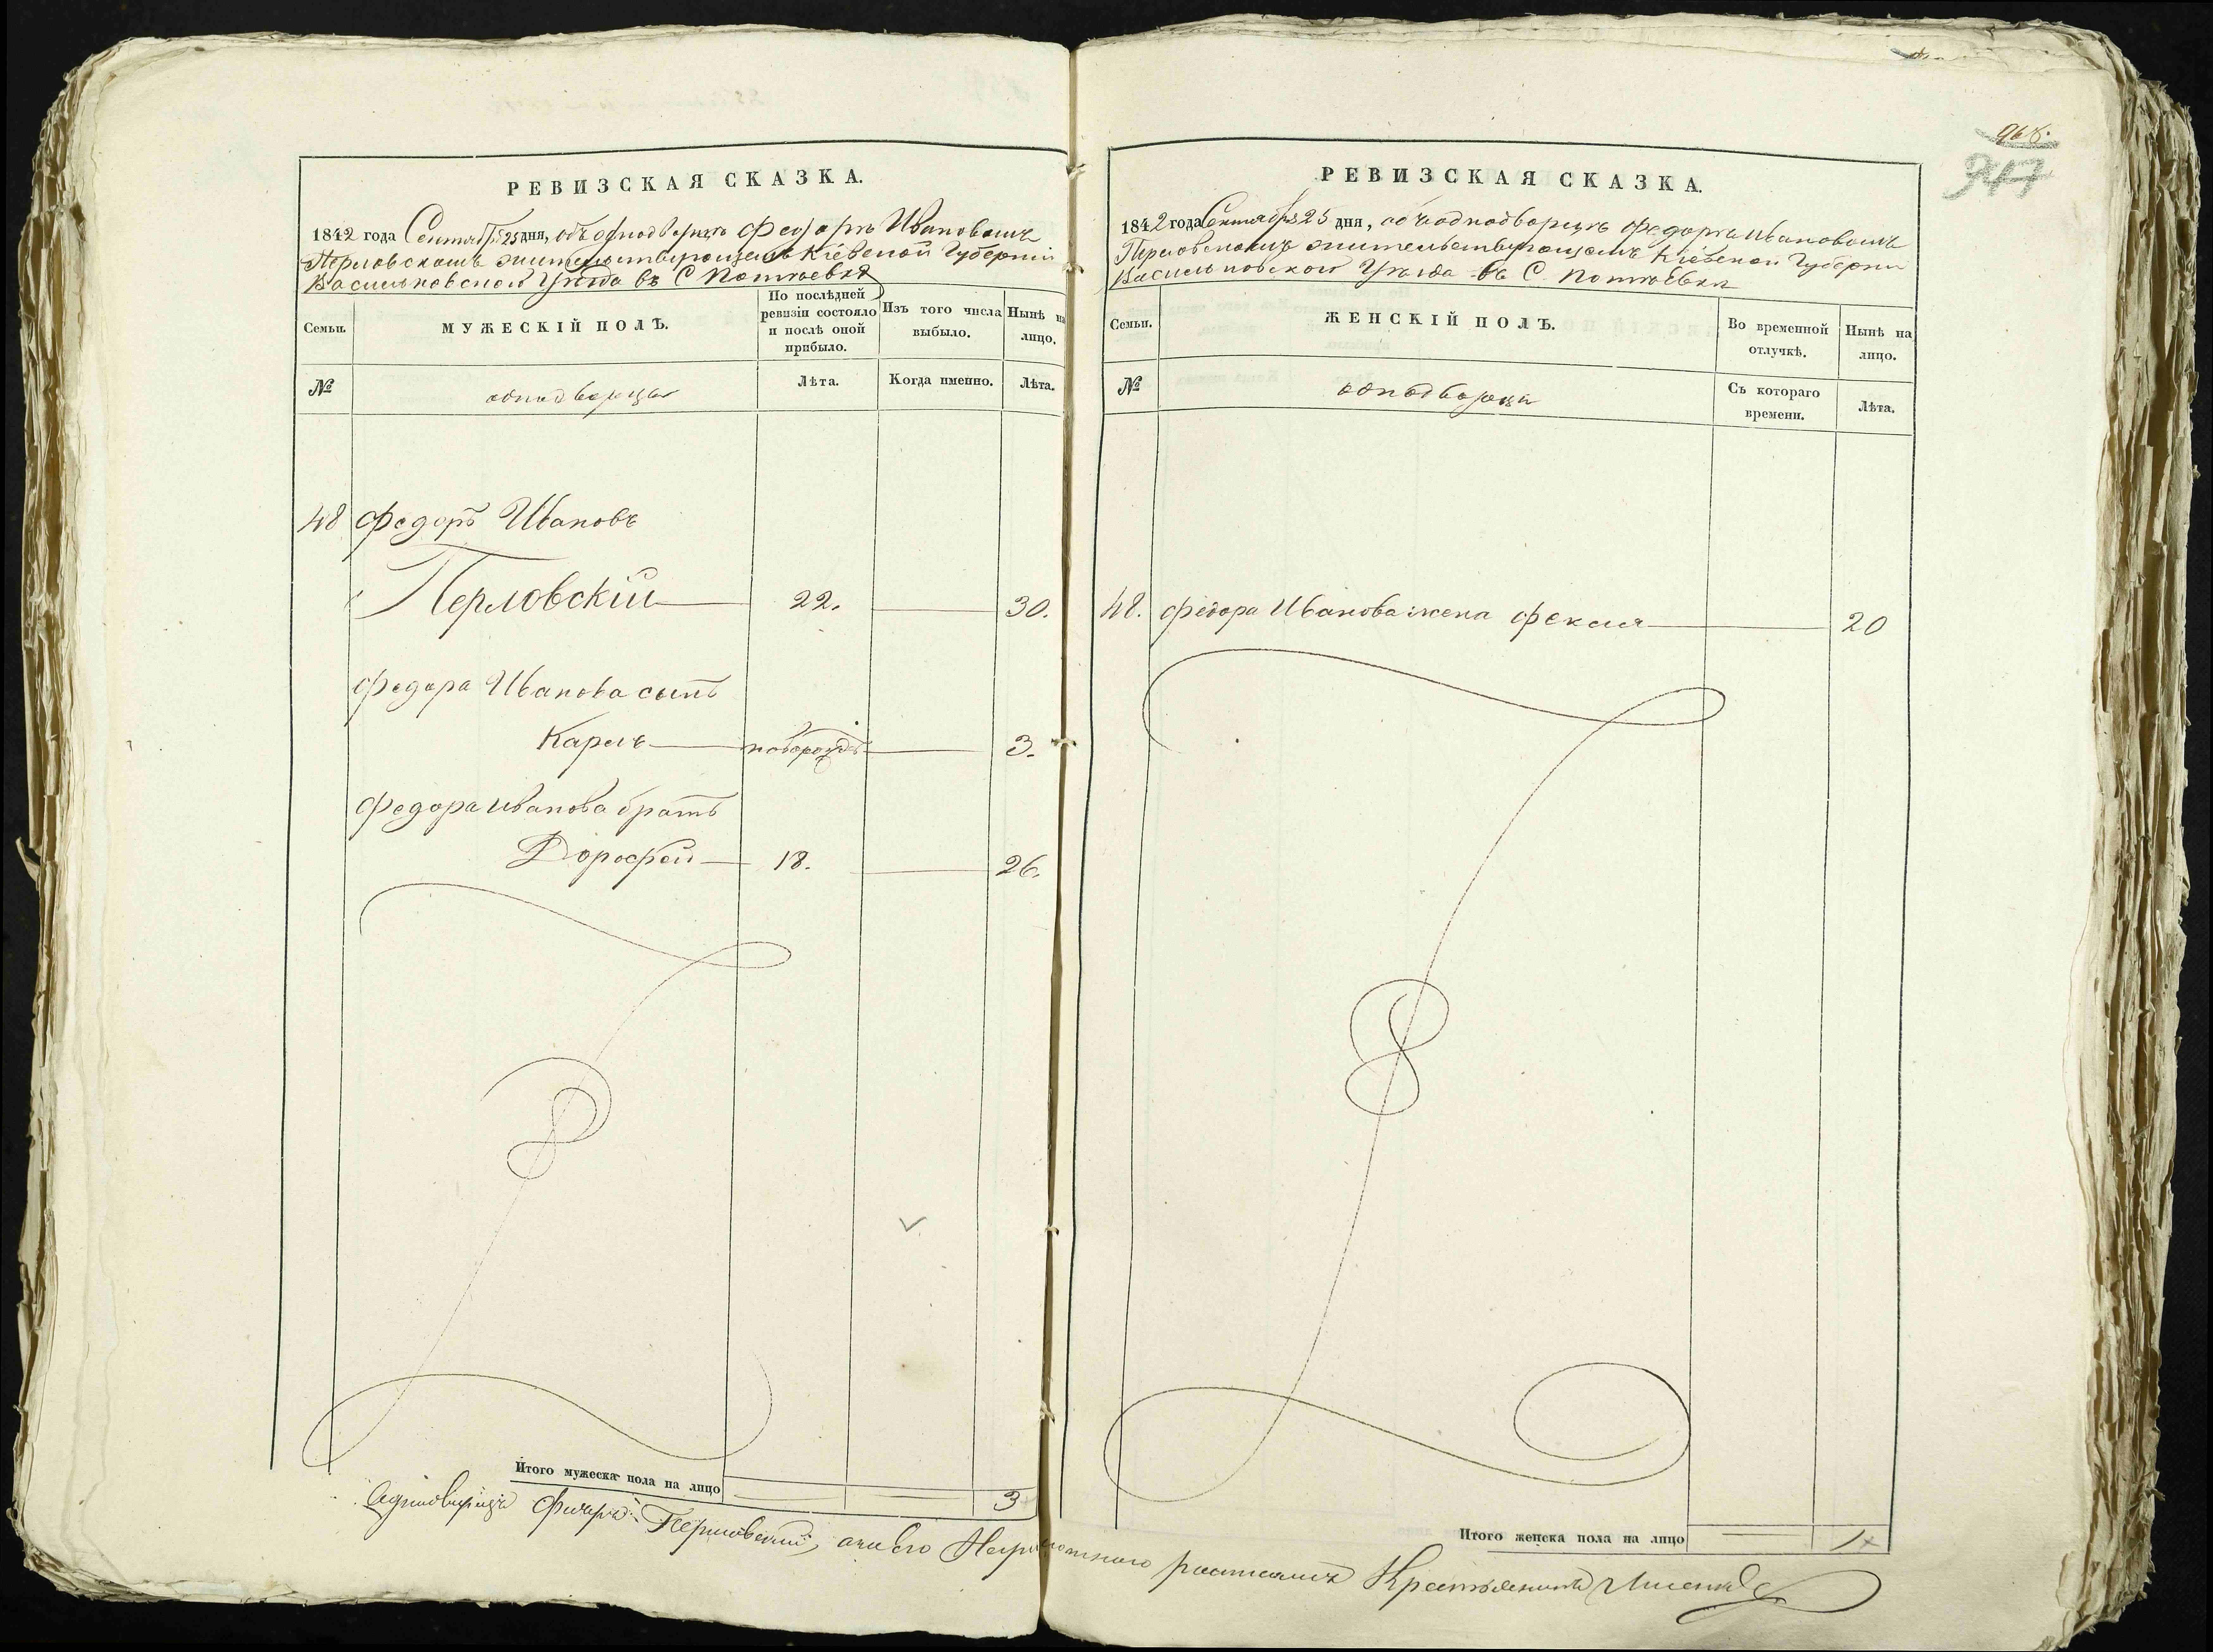 РЕВИЗСКАЯ СКАЗКА.
1842 года Сентября 25 дня, объ однодворцѣ Федорѣ Ивановомъ
Перловскомъ жительствующемъ Кіевской Губерніи
Васильковскаго Уѣзда въ С
Семьи.
МУЖЕСКІЙ ПОЛЪ.
По послѣдней ревизіи состояло и послѣ оной прибыло.
Изъ того числа выбыло.
Нынѣ на лицо.
№
однодворцы
Лѣта.
Когда именно.
Лѣта.
48 Федоръ Ивановъ
Перловскій 22. 30.
Федора Иванова сынъ
Карпъ новорожд 3.
Федора Иванова братъ
Дорофей 18. 26.
Итого мужеска пола на лицо 3
968.
947
РЕВИЗСКАЯ СКАЗКА.
1842 года Сентября 25 дня, объ однодворцѣ Федорѣ Ивановомъ
Перловскомъ жительствующемъ Кіевской Губерніи
Васильковского Уѣзда въ С.
Семьи.
ЖЕНСКІЙ ПОЛЪ.
Во временной отлучкѣ.
Нынѣ на лицо.
№
однодворци
Съ котораго времени.
Лѣта.
48. Федора Иванова жена Фекла 20
Итого женска пола на лицо 1
Перловский, а Неграмотного росписался Крестьянинъ